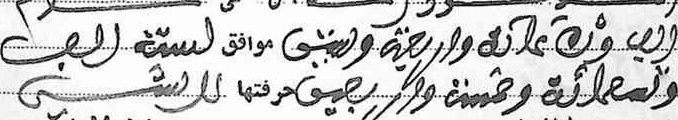 الف وثلاثمائة واربعة وستين موافق لسنة الف
وتسعمائة وخمسة واربعين حرفتها